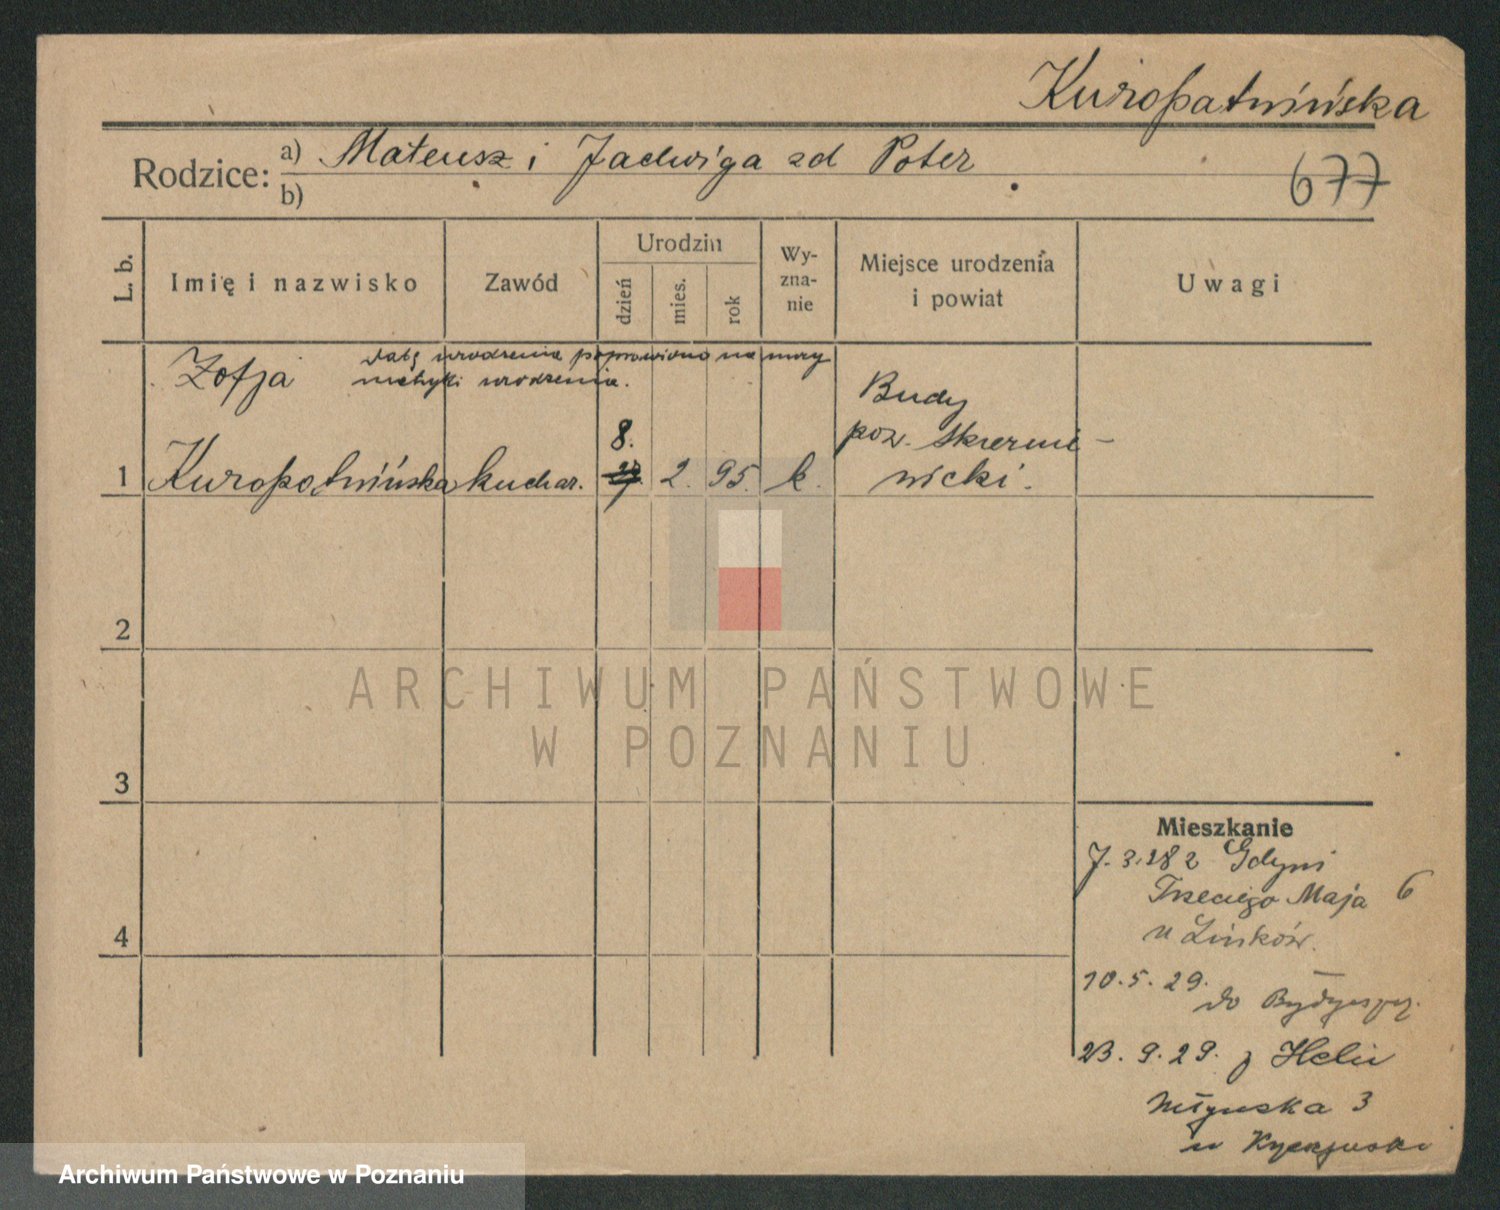 Kuropatwińska
Rodzice: a) Mateusz i Jadwiga zd Poter
b)
677
L. b.
Imię i nazwisko
Zawód
Urodzin
dzień
mies.
rok
Wy-
zna-
nie
Miejsce urodzenia
i powiat
Uwagi
datę urodzenia poprawiono na mocy
metryki urodzenia.
Zofja
Budy
pow. Skiernie-
wicki.
8.
1 Kuropatwińska kuchar. 27. 2. 95. k.
2
3
4
ARCHIWUM PAŃSTWOWE
W POZNANIU
Mieszkanie
7. 3. 28 z Gdyni
Trzeciego Maja 6
u Linków.
10. 5. 29.
do Bydgoszczy.
23. 9. 29. z Helu
3
u
Archiwum Państwowe w Poznaniu